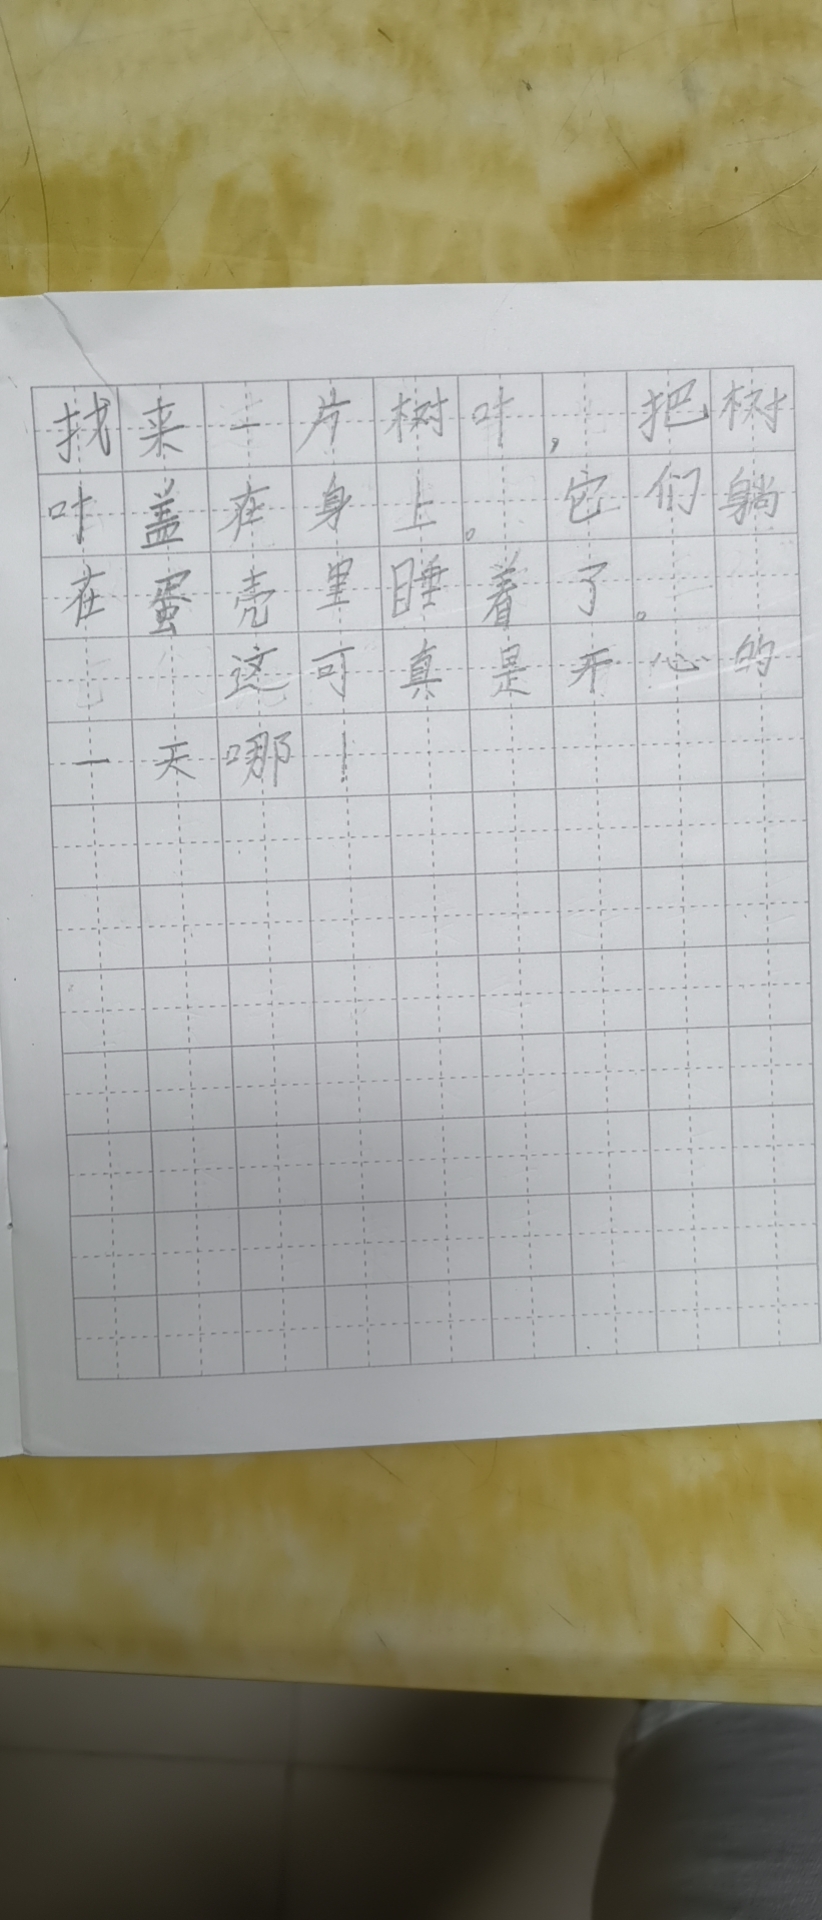 找来一片树叶，把树
叶盖在身上。它们躺
在蛋壳里睡着了。
这可真是开心的
一天哪！